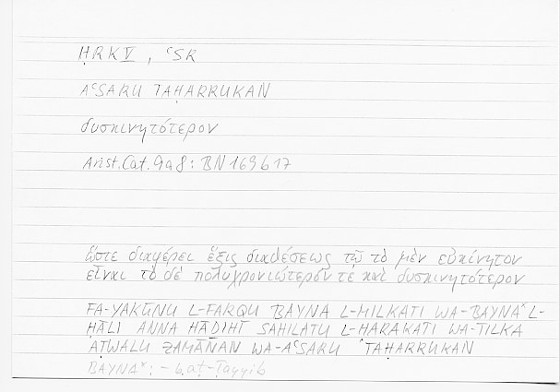 ḤRKⅤ, ʿSR
AʿSARU TAḤARRUKAN
δυσκινητότερον
Arist. Cat. 9a8: BN 169b17
ὥστε διαφέρει ἕξις διαθέσεως τῷ τὸ μὲν εὐκίνητον
εἶναι τὸ δὲ πολυχρονιώτερόν τε καὶ δυσκινητότερον
FA-YAKŪNU L-FARQU BAYNA L-MILKATI WA-BAYNA* L-
ḤĀLI ANNA HĀḎIHĪ SAHILATU L-ḤARAKATI WA-TILKA
AṬWALU ZAMĀNAN WA-AʿSARU TAḤARRUKAN
BAYNA*: – b. aṭ-Ṭayyib